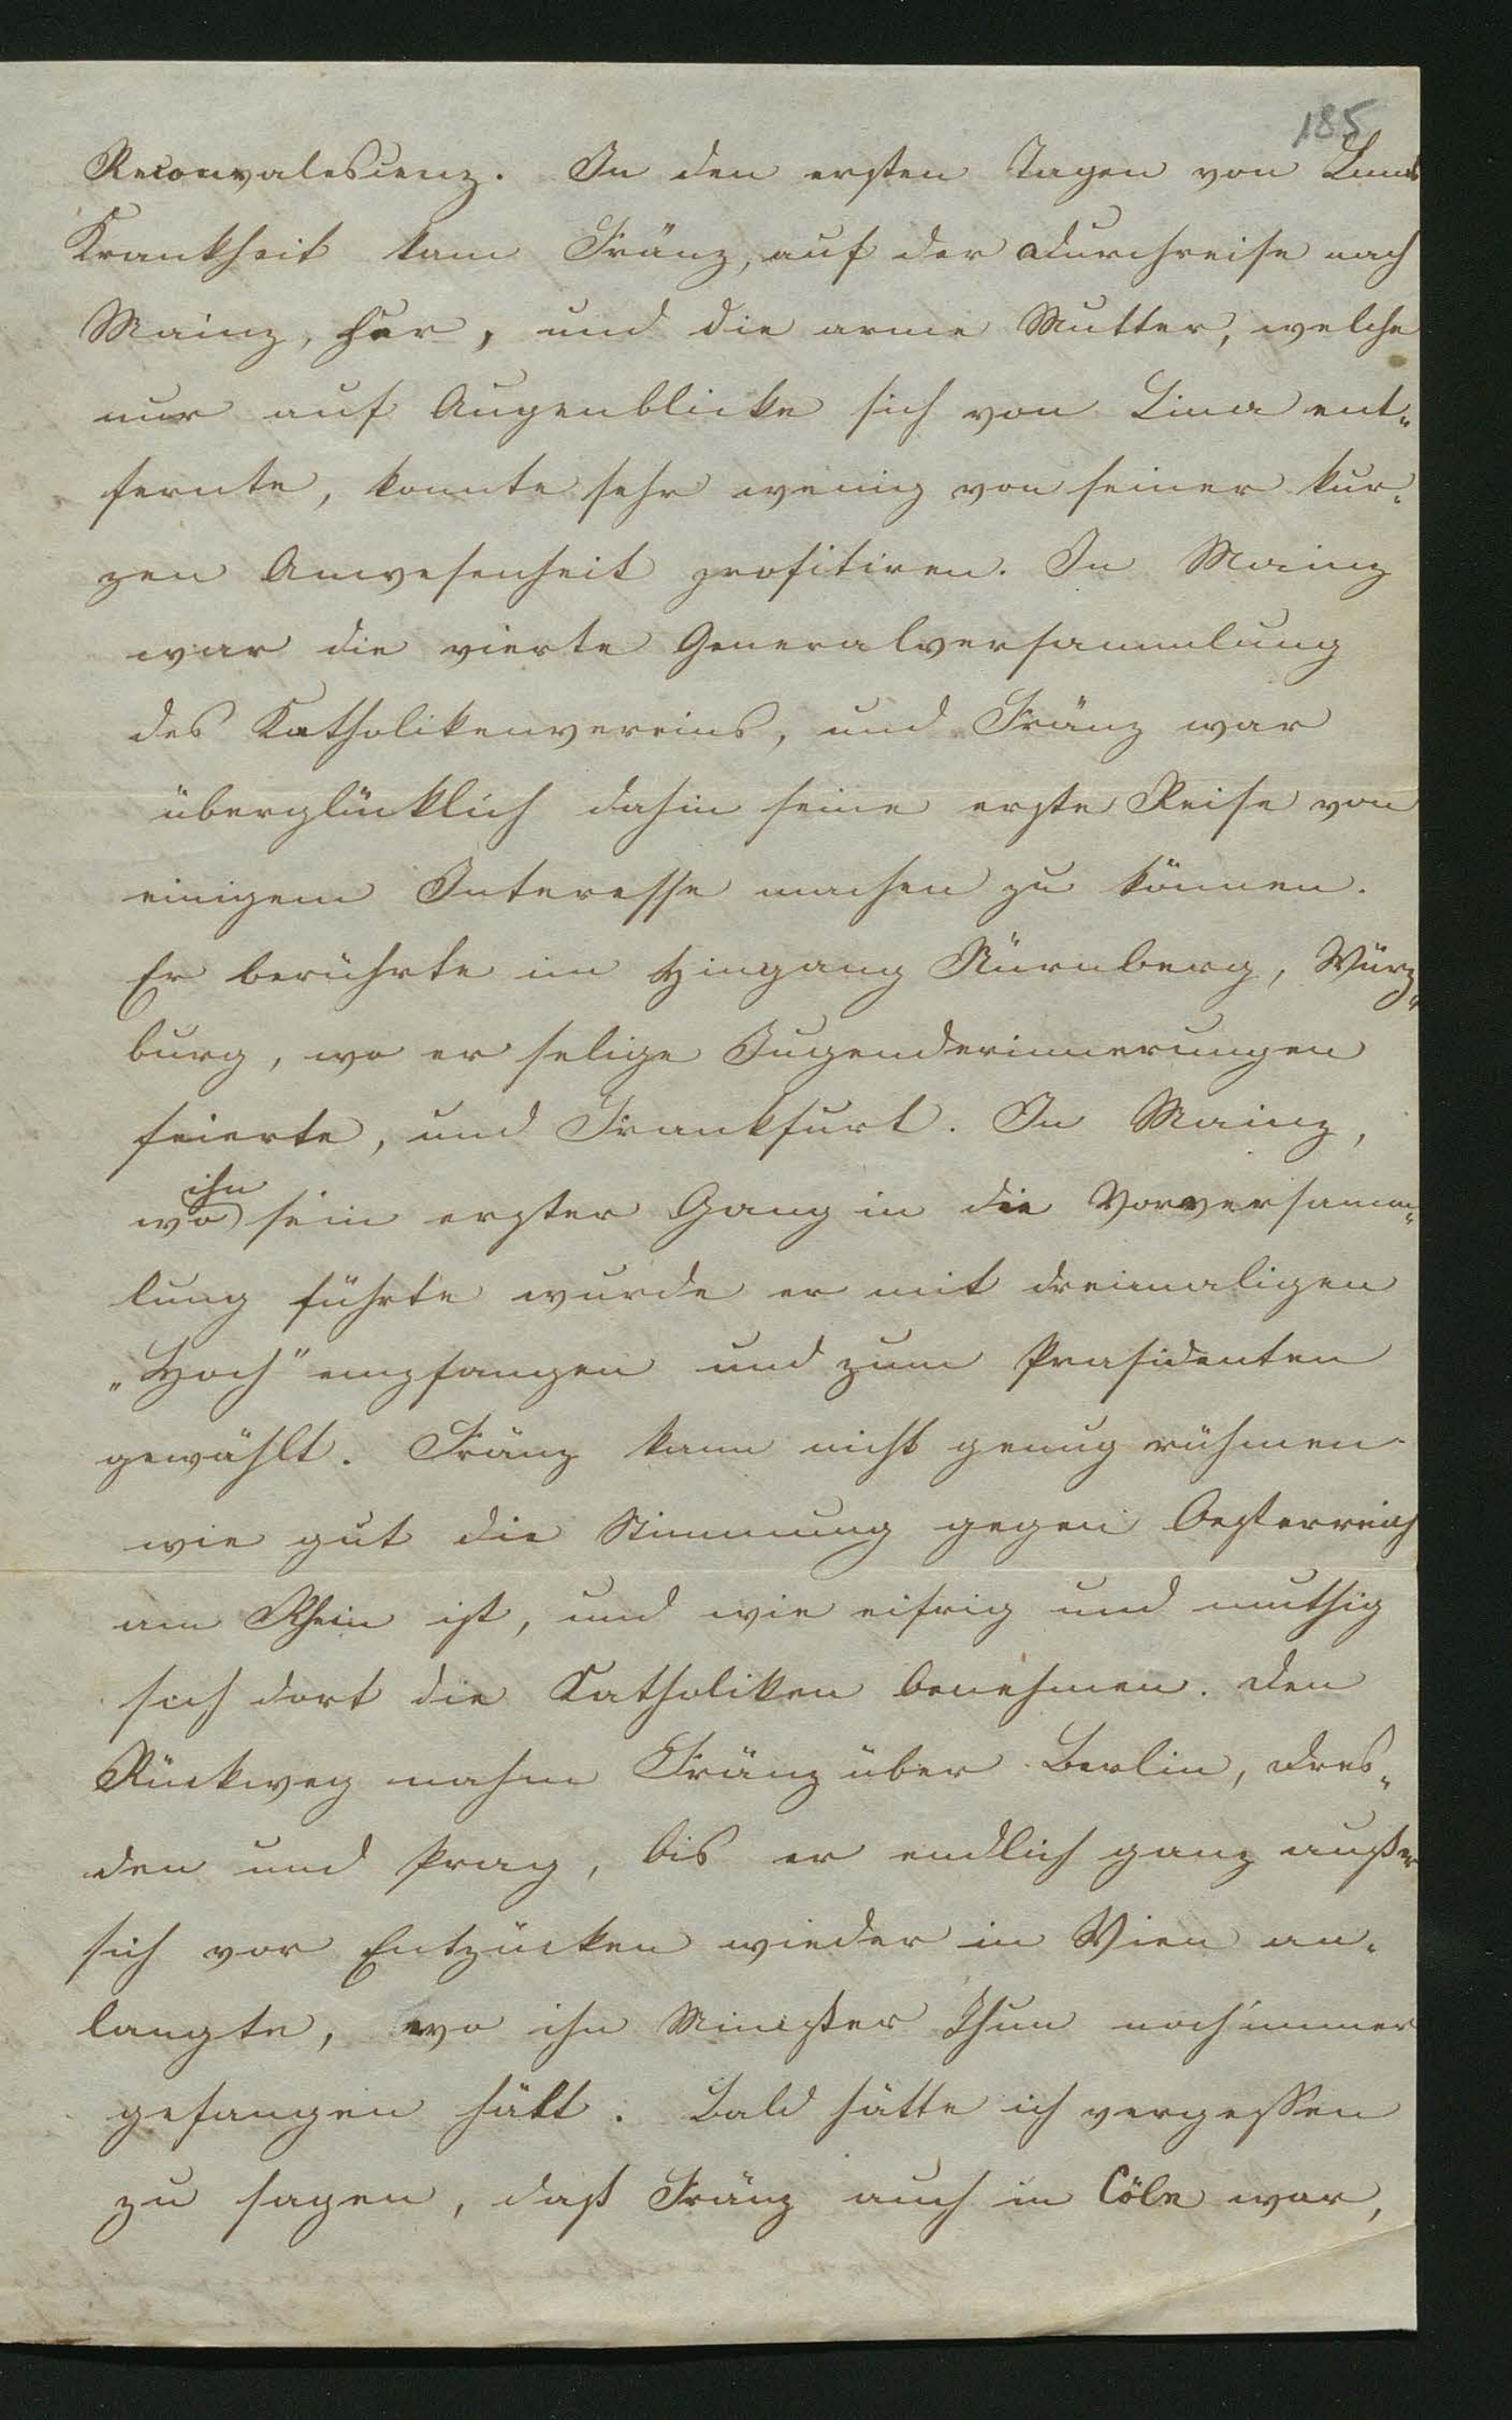 185
Reconvalescenz. In den ersten Tagen von Linas
Krankheit kam Fränz, auf der Durchreise nach
Mainz, her, und die arme Mutter, welche
nur auf Augenblicke sich von Lina ent„
fernte, konnte sehr wenig von seiner kur„
zen Anwesenheit profitiren. In Mainz
war die vierte Generalversammlung
des Katholikenvereins, und Fränz war
überglücklich dahin seine erste Reise von
einigem Interesse machen zu können.
Er berührte im Hingang Nürnberg, Würz„
burg, wo er selige Jugenderinnerungen
feierte, und Frankfurt. In Mainz,
ihn
wo sein erster Gang in die Vorversamm„
lung führte wurde er mit dreimaligen
„Hoch" empfangen und zum Präsidenten
gewählt. Fränz kann nicht genug rühmen
wie gut die Stimmung gegen Oesterreich
am Rhein ist, und wie eifrig und muthig
sich dort die Katholiken benehmen. Den
Rückweg nahm Fränz über Berlin, Dres„
den und Prag, bis er endlich ganz außer
sich vor Entzücken wieder in Wien an„
langte, wo ihn Minister Thun noch immer
gefangen hält. Bald hätte ich vergessen
zu sagen, daß Fränz auch in Cöln war,